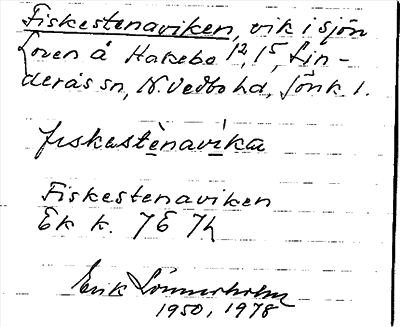 Fiskestenaviken, vik i sjön
Loren å Hakebo 12, 15, Lin-
derås sn, N. Vedbo hd, Jönk l.
fiskastènavìka
Fiskestenaviken
Ek k. 7E 7h
Erik Lönnerholm
1950, 1978